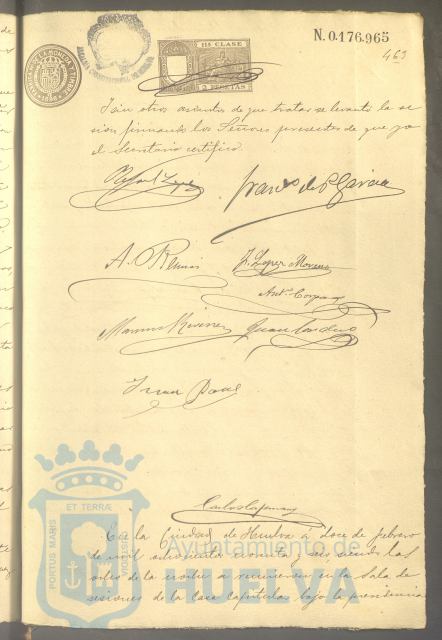 N. 0.176.965
463
11ª CLASE
2 PESETAS
1896
I sin otros asuntos de que tratar se levantó la se
sion firmando los Señores presentes de que yo
el Secretario certifico.
Rafael Lopez
Franco de P. Garcia
A.
J. Lopez Moreno
Antº
Juan
Carlos
En la Ciudad de Huelva á doce de febrero
de mil ochocientos noventa y seis, siendo las
de la noche se reunieron en la Sala de
sesiones de la Casa Capitular bajo la presidencia
PORTUS MARIS ET TERRÆ CUSTODIA
Ayuntamiento de
HUELVA